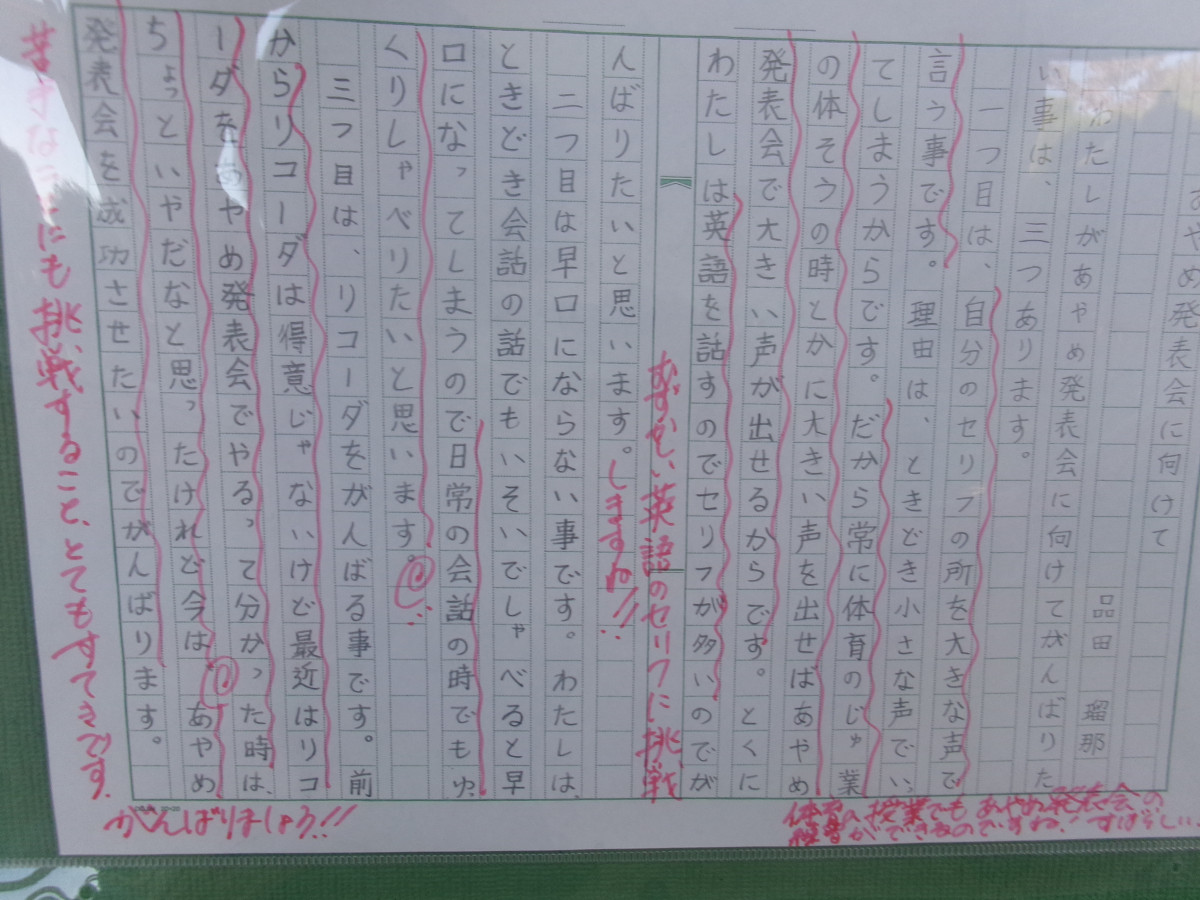 あやめ発表会に向けて
品田 瑠那
わたしがあやめ発表会に向けてがんばりた
い事は、三つあります。
一つ目は、自分のセリフの所を大きな声で
言う事です。理由は、ときどき小さな声でい
てしまうからです。だから常に体育のじゅ業
の体そうの時とかに大きい声を出せばあやめ
発表会で大きい声が出せるからです。とくに
わたしは英語を話すのでセリフが多いのでが
むずかしい英語のセリフに挑戦
しますね!!
んばりたいと思います。
二つ目は早口にならない事です。わたしは、
ときどき会話の話でもいそいでしゃべると早
口になってしまうので日常の会話の時でもゆ
くりしゃべりたいと思います。
三つ目は、リコーダをがんばる事です。前
からリコーダは得意じゃないけど最近はリコ
ーダをあやめ発表会でやるって分かった時は、
ちょっといやだなと思ったけれど今は、あやめ
発表会を成功させたいのでがんばります。
体育の授業でもあやめ発表会の
練習ができるのですね!すばらしい
苦手なことにも挑戦すること、とてもすてきです。
がんばりましょう!!